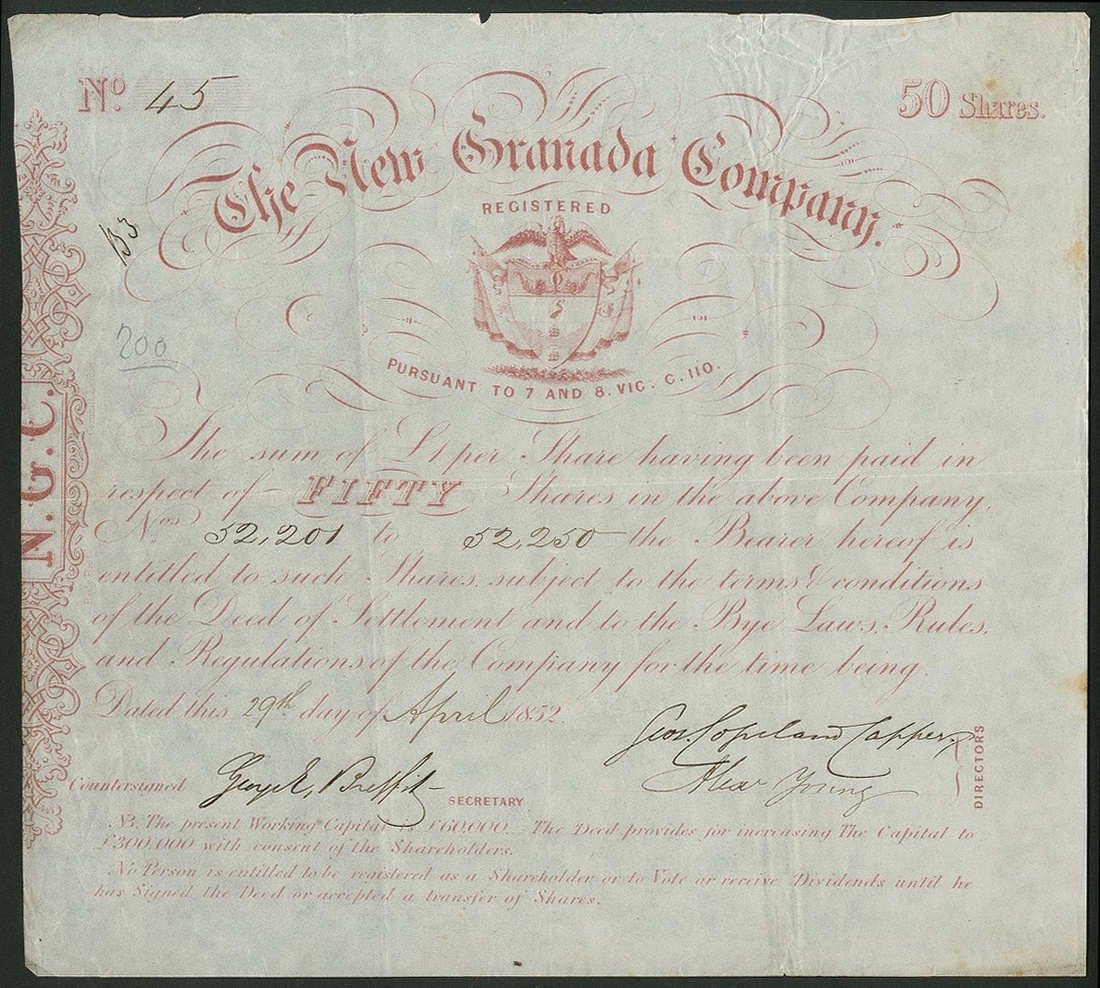 No. 45
50 Shares.
The New Granada Company.
REGISTERED
PURSUANT TO 7 AND 8. VIC. C. 110.
153
200
N.G.C.
The sum of £1 per Share having been paid in
respect of FIFTY Shares in the above Company,
Nos 52,201 to 52,250 the Bearer hereof is
entitled to such Shares, subject to the terms & conditions
of the Deed of Settlement and to the Bye Laws, Rules,
and Regulations of the Company for the time being.
Dated this 29th day of April 1852.
Geo. Copeland Capper,
Alexr Young
DIRECTORS
Countersigned George E, Breffit
SECRETARY
NB. The present Working Capital is £60,000. The Deed provides for increasing The Capital to
£300,000 with consent of the Shareholders.
No Person is entitled to be registered as a Shareholder or to Vote or receive Dividends until he
has Signed the Deed or accepted a transfer of Shares.